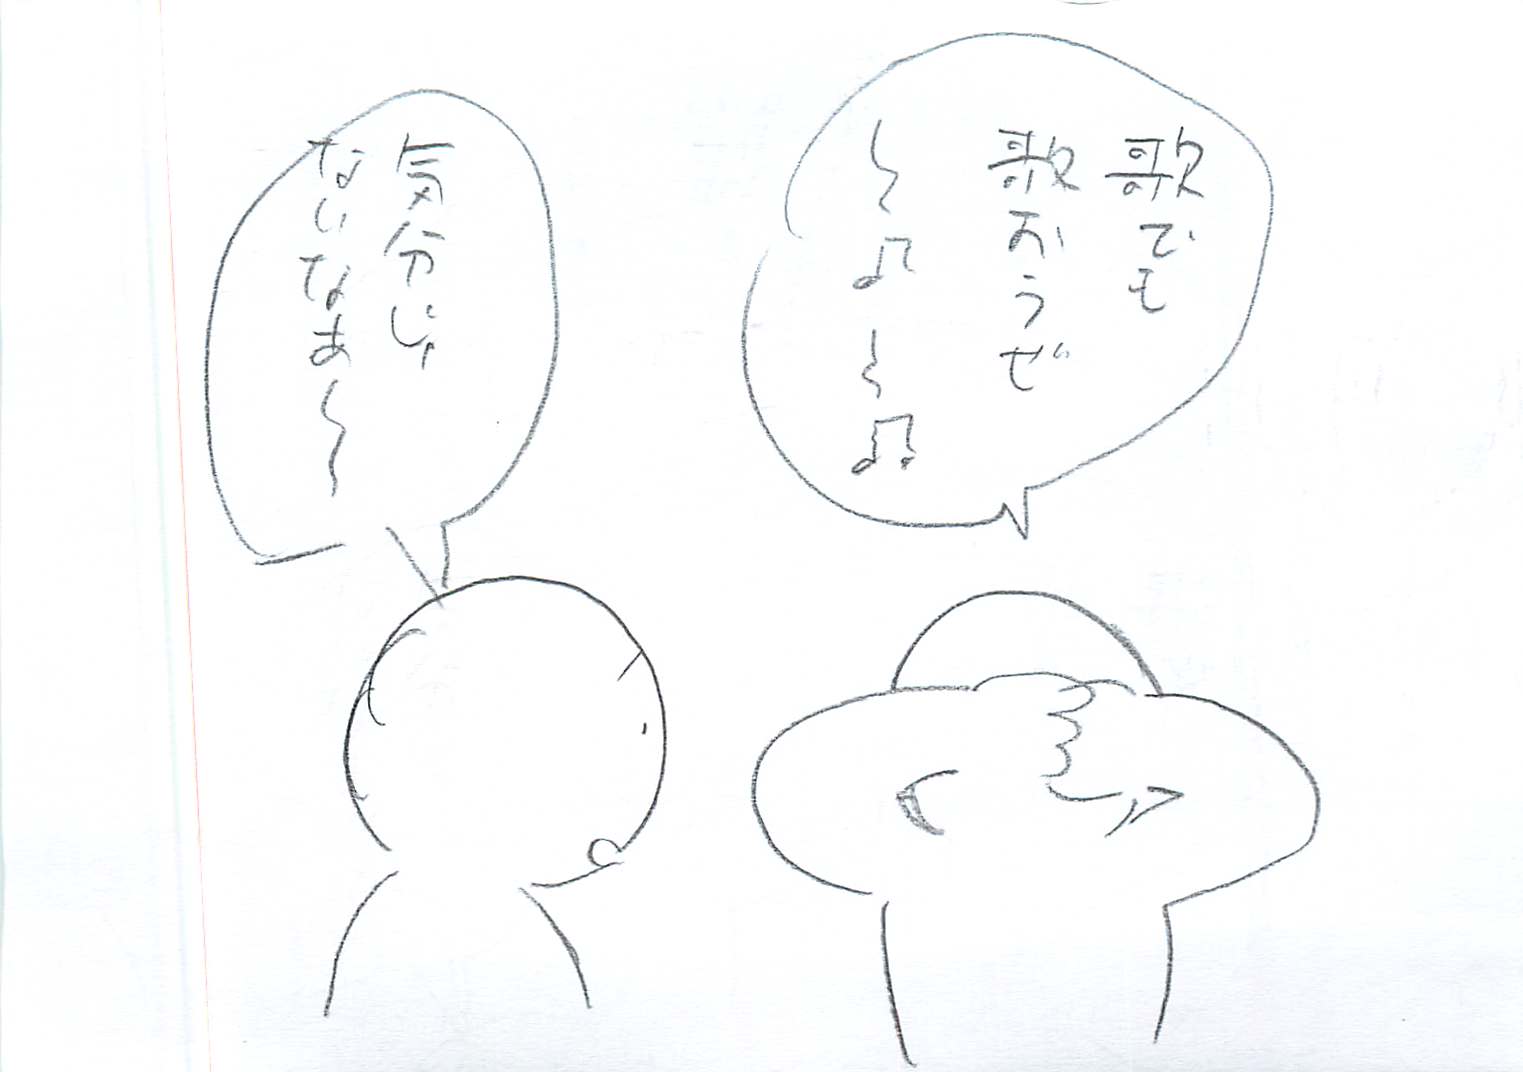 歌でも
歌おうぜ
〜♪〜♫
気分じゃ
ないなあ〜